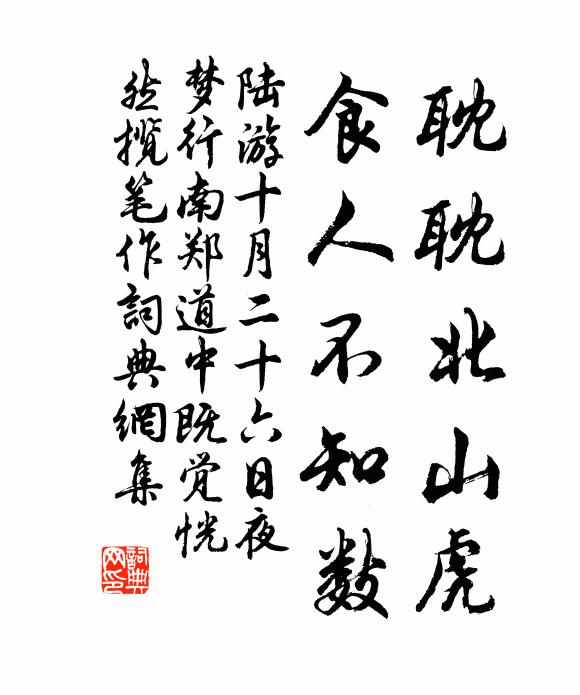 耽耽北山虎
食人不知数
陆游十月二十六日夜
梦行南郑道中既觉恍
然揽笔作詞典網集
詞典
网印